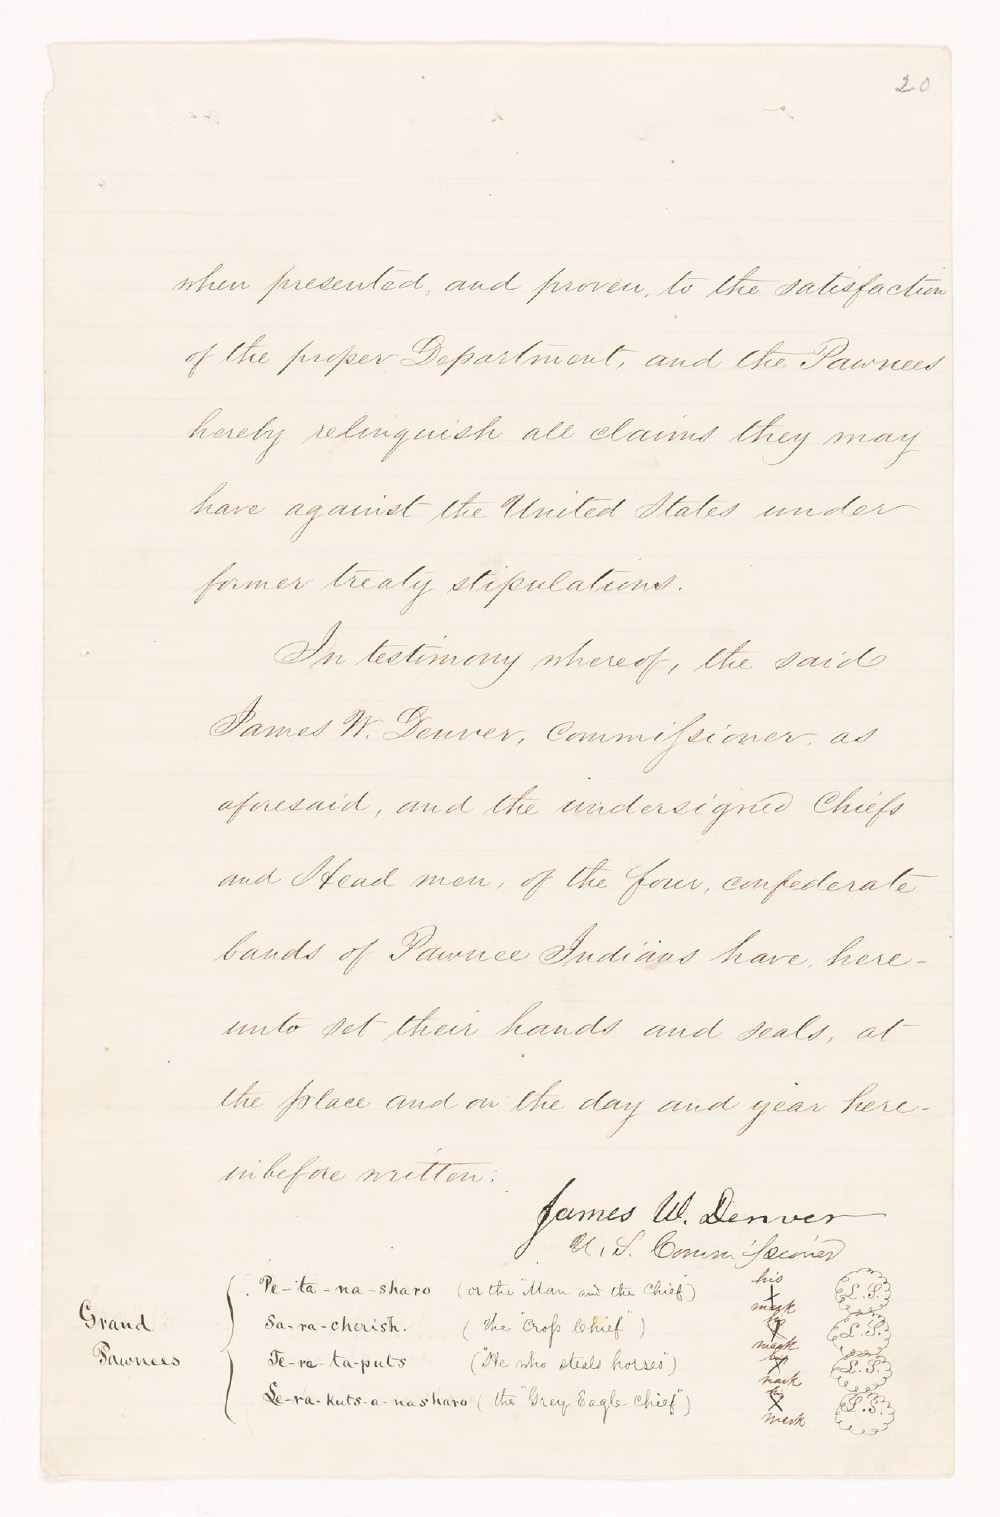 20
when presented, and proven, to the satisfaction
of the proper Department, and the Pawnees
hereby relinquish all claims they may
have against the United States under
former treaty stipulations.
In testimony whereof, the said
James W. Denver, Commissioner, as
aforesaid, and the undersigned Chiefs
and Head men, of the four, confederate
bands of Pawnee Indians have, here-
unto set their hands and seals, at
the place and on the day and year here-
inbefore written:
James W. Denver
U. S. Commissioner
Grand Pawnees
Pe-ta-na-sharo (or the "Man and the Chief") his X mark L.S.
Sa-ra-cherish. (the "Cross Chief") his X mark L.S.
Te-ra-ta-puts ("He who steals horses") his X mark L.S.
Le-ra-kuts-a-nasharo (the "Grey Eagle Chief") his X mark L.S.